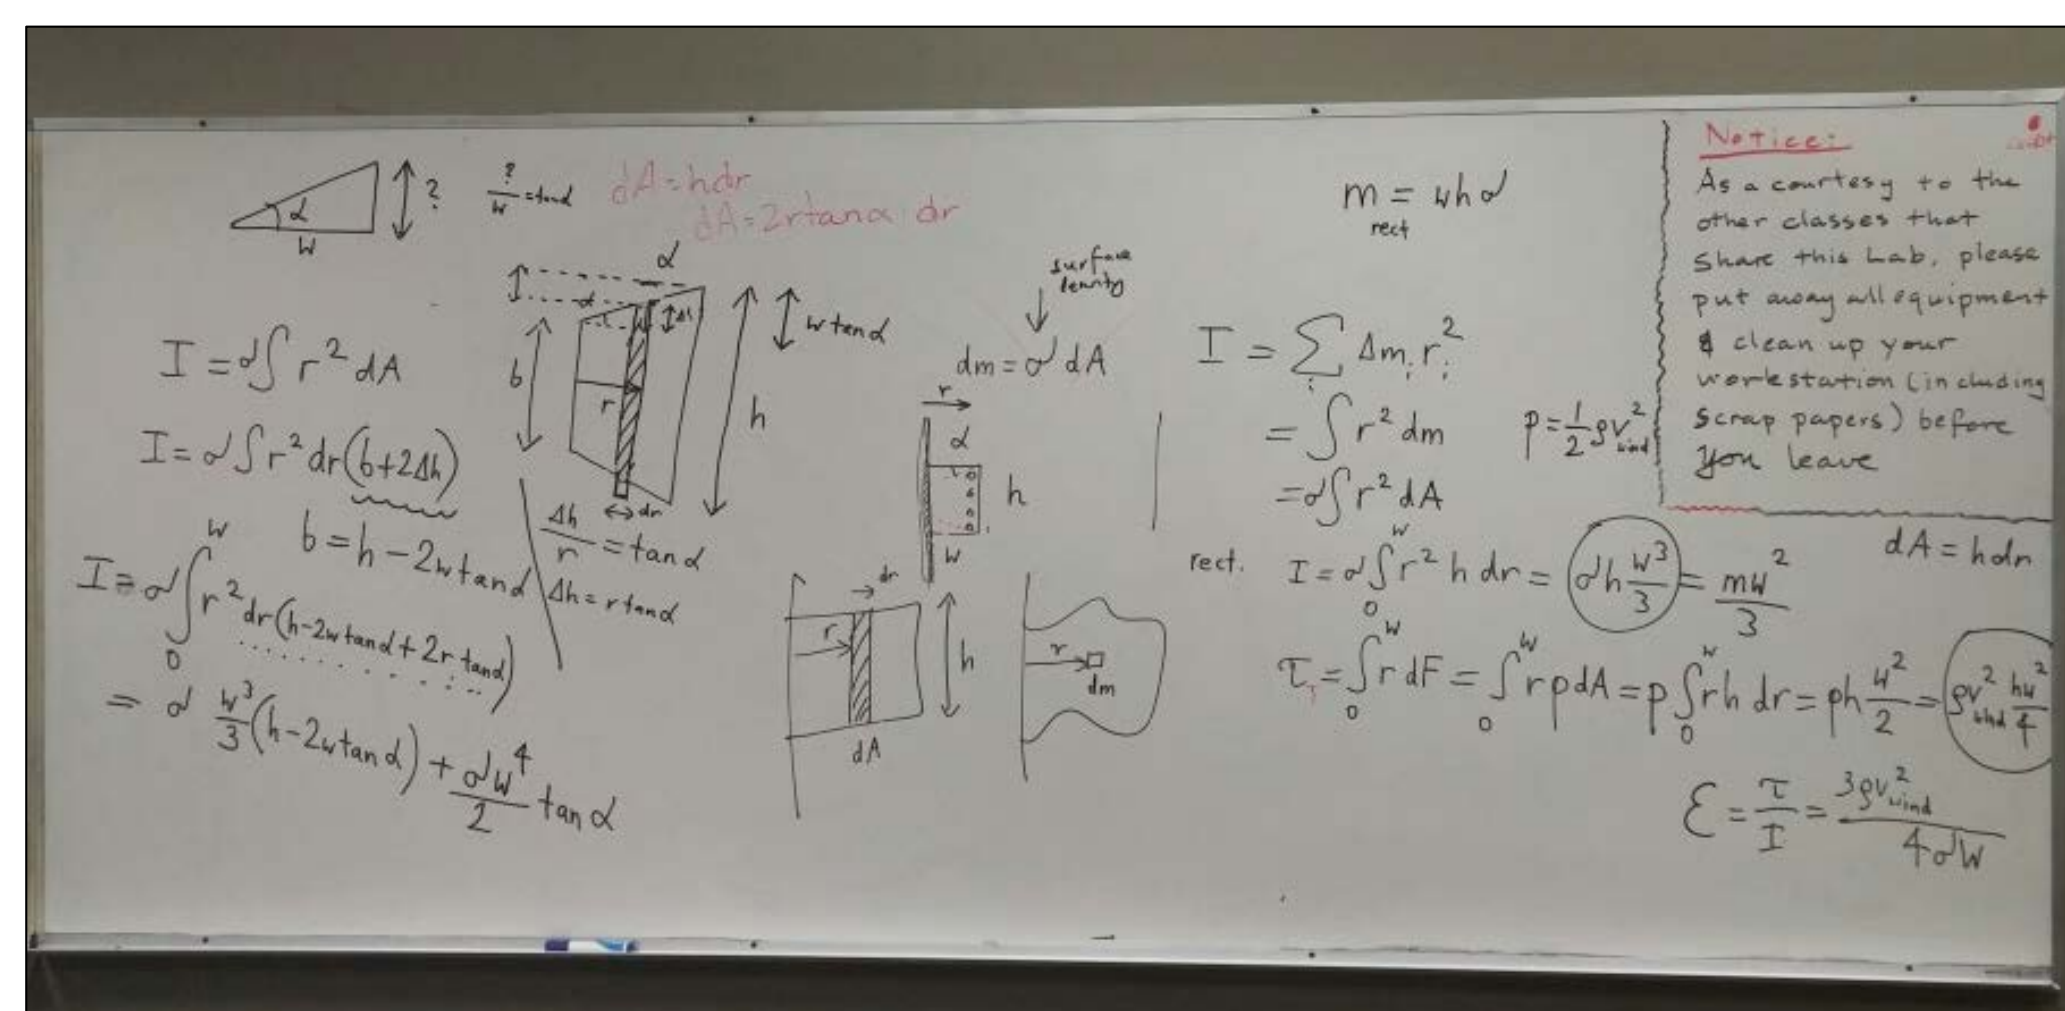 ?
α
w
?/w = tanα
dA=hdr
dA=2rtanα dr
α
α
Δh
b
r
h
w tanα
dr
I = σ∫ r² dA
I = σ∫ r² dr(b+2Δh)
b = h - 2w tanα
Δh/r = tanα
Δh = r tanα
I = σ∫₀ʷ r² dr(h-2w tanα + 2r tanα)
= σ w³/3 (h-2w tanα) + σw⁴/2 tanα
surface
density
dm = σ dA
r
α
h
w
dr
r
h
dA
r
dm
m = whσ
rect
I = Σᵢ Δmᵢ rᵢ²
= ∫ r² dm
= σ∫ r² dA
p = 1/2 ρv²wind
rect. I = σ∫₀ʷ r² h dr = σh w³/3 = mw²/3
dA = hdr
τ = ∫₀ʷ r dF = ∫₀ʷ r p dA = p∫₀ʷ r h dr = ph w²/2 = ρv²wind hw²/4
ε = τ/I = 3ρv²wind/4σw
Notice:
As a courtesy to the
other classes that
share this Lab, please
put away all equipment
& clean up your
workstation (including
scrap papers) before
you leave